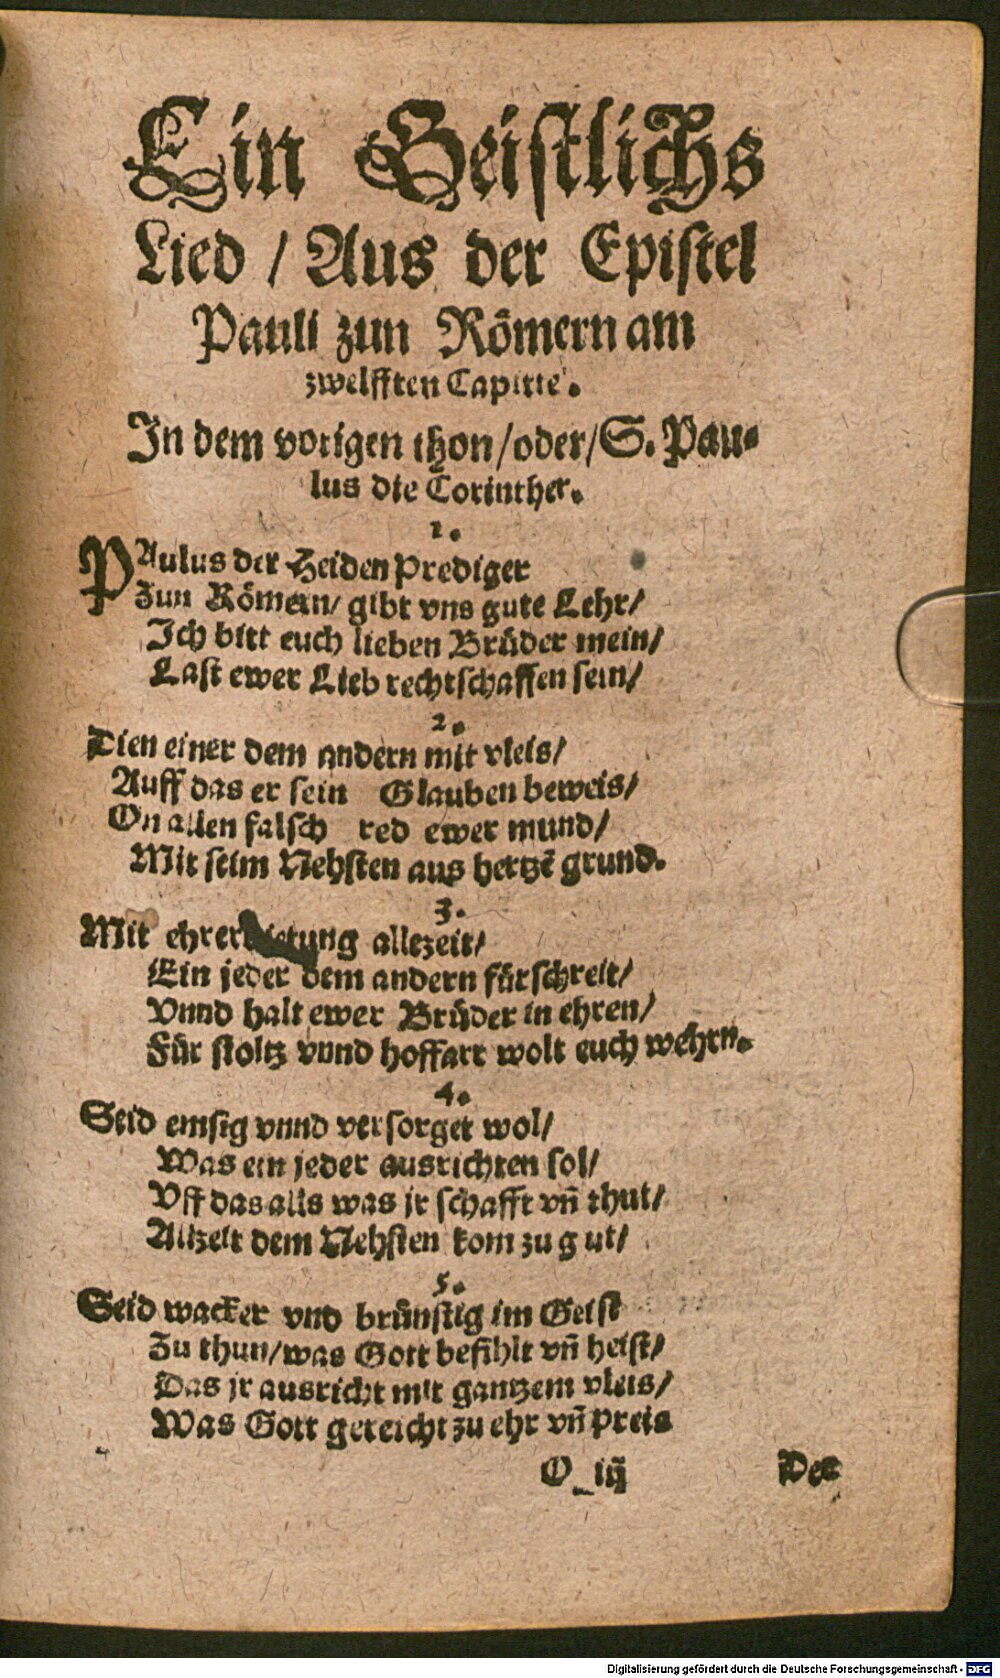 Ein Geistlichs
Lied / Aus der Epistel
Pauli zun Römern am
zwelfften Capitte.
In dem vorigen thon/oder/S. Pau-
lus die Corinther.
1.
PAulus der Heiden Prediger
Zun Römern/ gibt vns gute Lehr/
Ich bitt euch lieben Brüder mein/
Last ewer Lieb rechtschaffen sein/
2.
Dien einer dem andern mit vleis/
Auff das er sein Glauben beweis/
On allen falsch red ewer mund/
Mit seim Nehsten aus hertzē grund.
3.
Mit ehrerbietung allezeit/
Ein jeder dem andern fürschreit/
Vnnd halt ewer Brüder in ehren/
Für stoltz vnnd hoffart wolt euch wehrn.
4.
Seid emsig vnnd versorget wol/
Was ein jeder ausrichten sol/
Vff das alls was jr schafft vn̄ thut/
Allzeit dem Nehsten kom zu gut/
5.
Seid wacker vnd brünstig im Geist
Zu thun/was Gott befihlt vn̄ heist/
Das jr ausricht mit gantzem vleis/
Was Gott gereicht zu ehr vn̄ preis
O iij Der
Digitalisierung gefördert durch die Deutsche Forschungsgemeinschaft - DFG